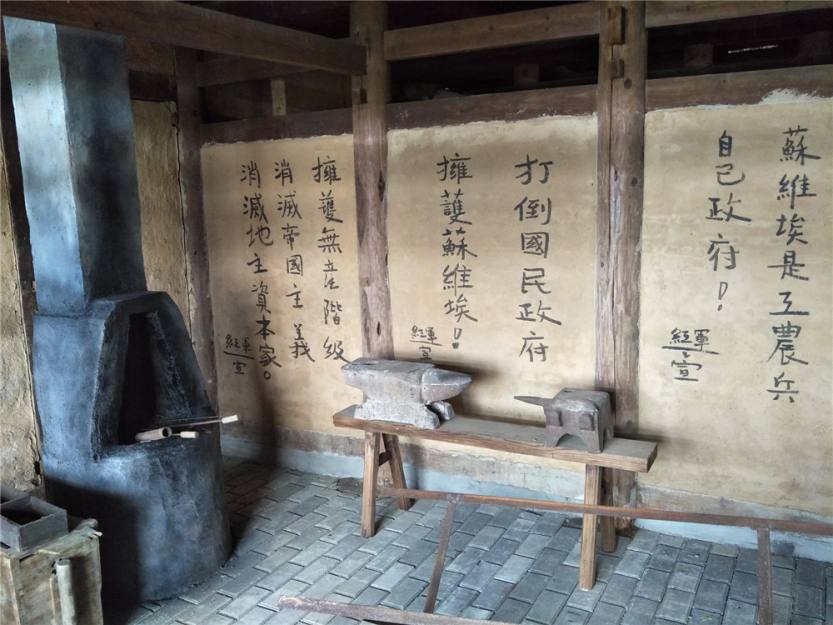 蘇維埃是工農兵
自己政府！
紅軍宣
打倒國民政府
擁護蘇維埃！
紅軍宣
擁護無产階級
消滅帝國主義
消滅地主資本家。
紅軍宣